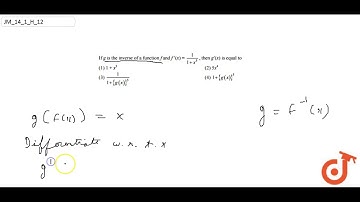 JM_14_1_H_12
If g is the inverse of a function f and f'(x) = 1/(1+x⁵), then g'(x) is equal to
(1) 1 + x⁵ (2) 5x⁴
(3) 1/(1+{g(x)}⁵) (4) 1+{g(x)}⁵
g(f(x)) = x g = f⁻¹(x)
Differentiate w.r.t. x
g'